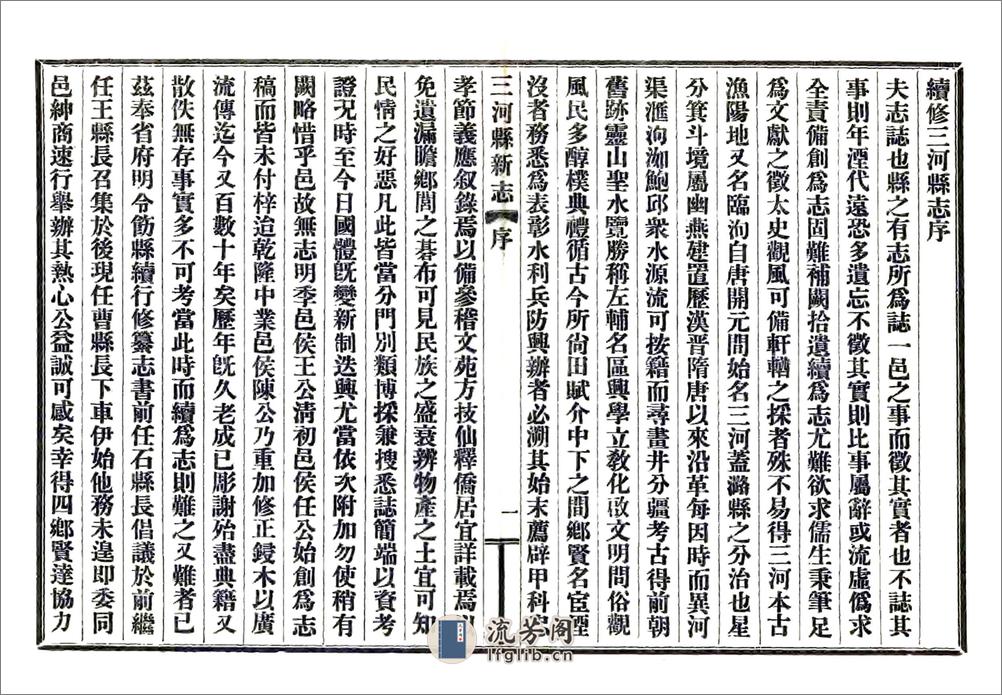 續修三河縣志序
夫志誌也縣之有志所爲誌一邑之事而徵其實者也不誌其
事則年湮代遠恐多遺忘不徵其實則比事屬辭或流虛僞求
全責備創爲志固難補闕拾遺續爲志尤難欲求儒生秉筆足
爲文獻之徵太史觀風可備軒輶之採者殊不易得三河本古
漁陽地又名臨泃自唐開元間始名三河蓋潞縣之分治也星
分箕斗境屬幽燕建置歷漢晉隋唐以來沿革每因時而異河
渠滙泃洳鮑邱衆水源流可按籍而尋畫井分疆考古得前朝
舊跡靈山聖水覽勝稱左輔名區興學立敎化啟文明問俗觀
風民多醇樸典禮循古今所尙田賦介中下之間鄕賢名宦湮
沒者務悉爲表彰水利兵防興辦者必溯其始末薦辟甲科
三河縣新志 序 一
孝節義應叙錄焉以備參稽文苑方技仙釋僑居宜詳載焉
免遺漏瞻鄕閭之碁布可見民族之盛衰辨物產之土宜可知
民情之好惡凡此皆當分門別類博採兼搜悉誌簡端以資考
證况時至今日國體旣變新制迭興尤當依次附加勿使稍有
闕略惜乎邑故無志明季邑侯王公淸初邑侯任公始創爲志
稿而皆未付梓迨乾隆中業邑侯陳公乃重加修正鋟木以廣
流傳迄今又百數十年矣歷年旣久老成已彫謝殆盡典籍又
散佚無存事實多不可考當此時而續爲志則難之又難者已
茲奉省府明令飭縣續行修纂志書前任石縣長倡議於前繼
任王縣長召集於後現任曹縣長下車伊始他務未遑即委同
邑紳商速行舉辦其熱心公益誠可感矣幸得四鄕賢達協力
流芳阁
lfglib.cn